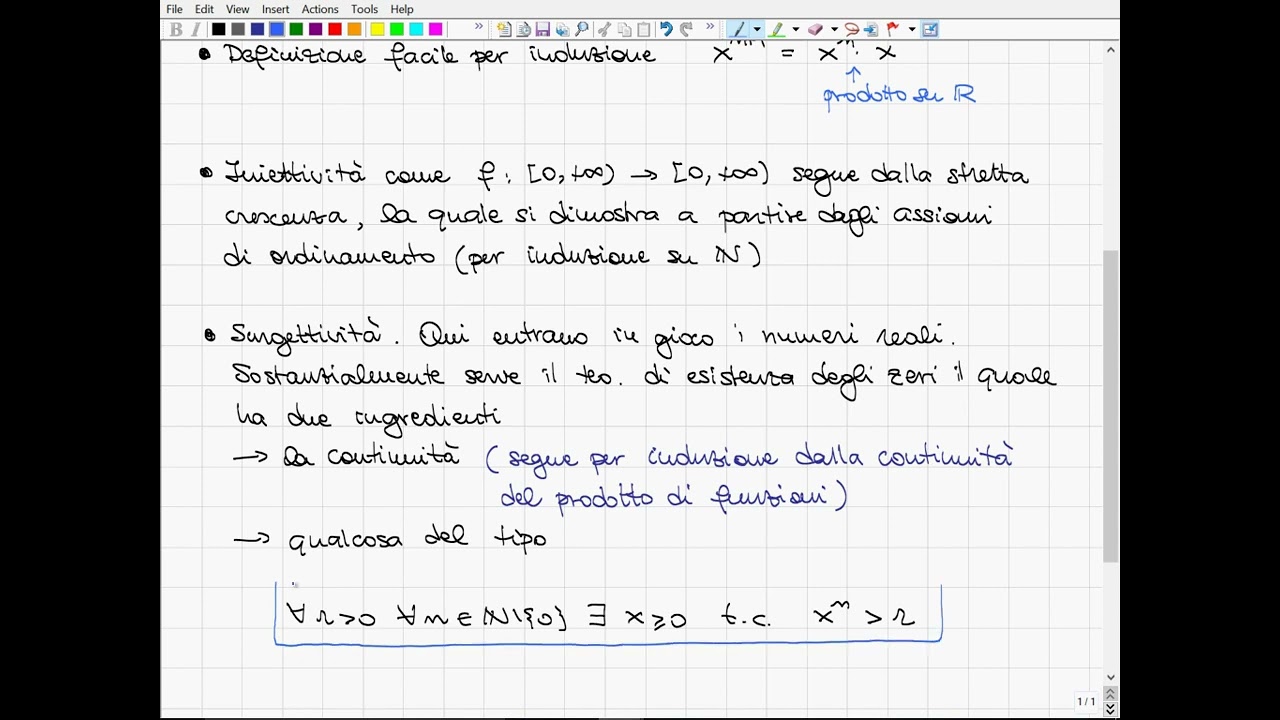 File Edit View Insert Actions Tools Help
B I » »
• Definizione facile per induzione x^{n+1} = x^n · x
↑
prodotto su ℝ
• Iniettività come f : [0,+∞) → [0,+∞) segue dalla stretta
crescenza, la quale si dimostra a partire dagli assiomi
di ordinamento (per induzione su ℕ)
• Surgettività. Qui entrano in gioco i numeri reali.
Sostanzialmente serve il teo. di esistenza degli zeri il quale
ha due ingredienti
→ la continuità (segue per induzione dalla continuità
del prodotto di funzioni)
→ qualcosa del tipo
∀ r>0 ∀ n ∈ ℕ\{0} ∃ x ≥ 0 t.c. x^n > r
1/1